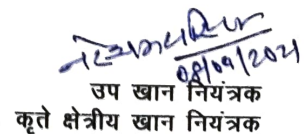 08/09/2021
उप खान नियंत्रक
कृते क्षेत्रीय खान नियंत्रक